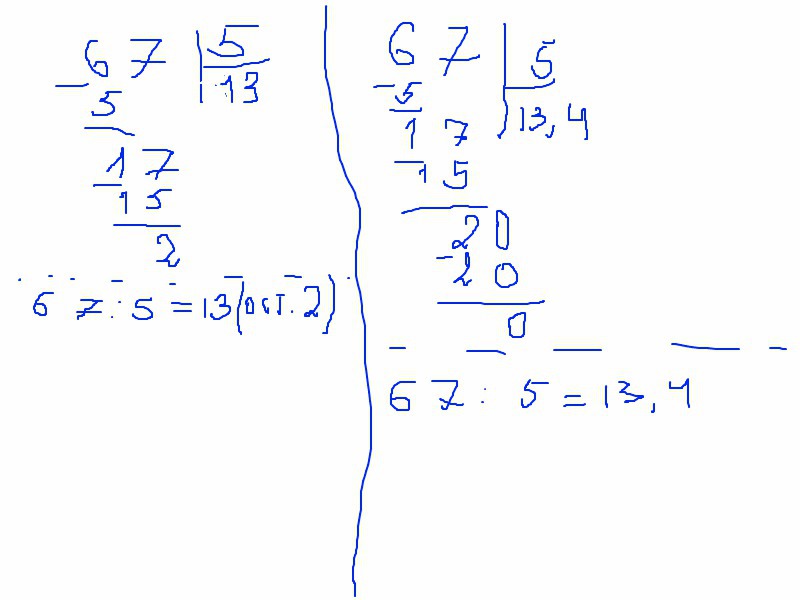 67 5
- 5 13
17
- 15
2
67 : 5 = 13 (ост. 2)
67 5
- 5 13,4
17
- 15
20
- 20
0
67 : 5 = 13,4